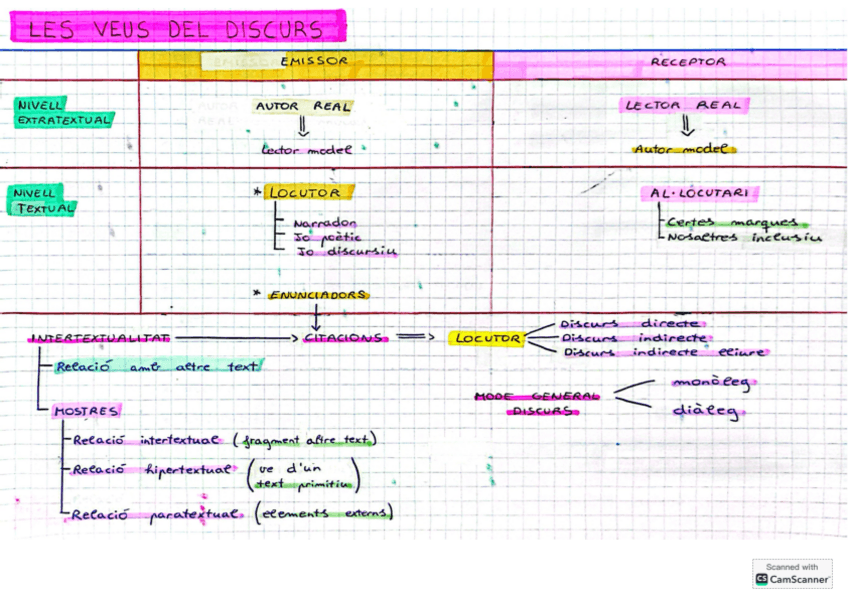 LES VEUS DEL DISCURS
EMISSOR
RECEPTOR
NIVELL
EXTRATEXTUAL
AUTOR REAL
Lector model
LECTOR REAL
Autor model
NIVELL
TEXTUAL
* LOCUTOR
Narrador
Jo poètic
Jo discursiu
* ENUNCIADORS
AL·LOCUTARI
Certes marques
Nosaltres inclusiu
INTERTEXTUALITAT
CITACIONS
LOCUTOR
Discurs directe
Discurs indirecte
Discurs indirecte lliure
Relació amb altre text
MODE GENERAL
DISCURS
monòleg
diàleg
MOSTRES
Relació intertextual (fragment altre text)
Relació hipertextual (ve d'un
text primitiu)
Relació paratextual (elements externs)
Scanned with
CS CamScanner